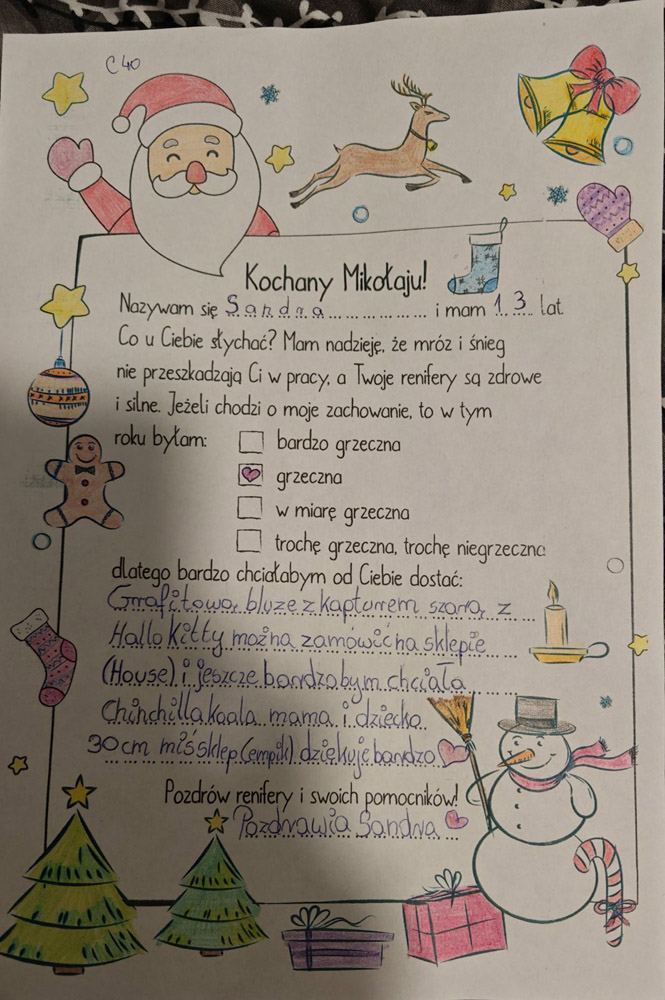 C 40
Kochany Mikołaju!
Nazywam się Sandra i mam 13 lat.
Co u Ciebie słychać? Mam nadzieję, że mróz i śnieg
nie przeszkadzają Ci w pracy, a Twoje renifery są zdrowe
i silne. Jeżeli chodzi o moje zachowanie, to w tym
roku byłam:
bardzo grzeczna
grzeczna
w miarę grzeczna
trochę grzeczna, trochę niegrzeczna
dlatego bardzo chciałabym od Ciebie dostać:
Grafitową, bluzę z kapturem szarą, z
Hallo kitty można zamówić na sklepie
(House) i jeszcze bardzo bym chciała
Chinchilla koala mama i dziecko
30 cm miś sklep (empik) dziękuje bardzo
Pozdrów renifery i swoich pomocników!
Pozdrawia Sandra